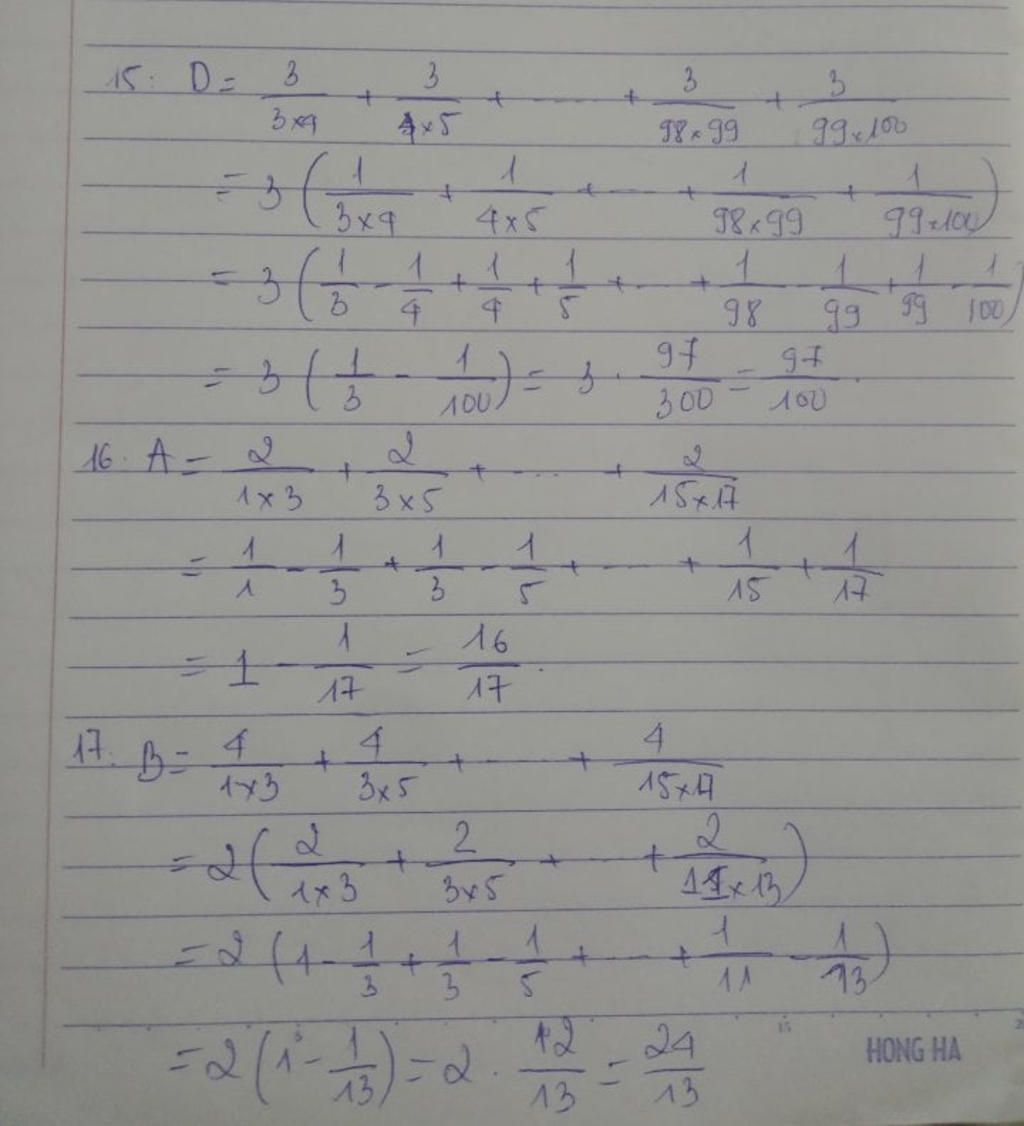 15: D = 3/(3×4) + 3/(4×5) + ..... + 3/(98×99) + 3/(99×100)
= 3 ( 1/(3×4) + 1/(4×5) + .... + 1/(98×99) + 1/(99×100) )
= 3 ( 1/3 - 1/4 + 1/4 + 1/5 + ... + 1/98 - 1/99 + 1/99 - 1/100 )
= 3 ( 1/3 - 1/100 ) = 3 . 97/300 = 97/100.
16. A = 2/(1×3) + 2/(3×5) + ..... + 2/(15×17)
= 1/1 - 1/3 + 1/3 - 1/5 + ..... + 1/15 + 1/17
= 1 - 1/17 = 16/17.
17. B = 4/(1×3) + 4/(3×5) + ..... + 4/(15×17)
= 2 ( 2/(1×3) + 2/(3×5) + .... + 2/(11×13) )
= 2 ( 1 - 1/3 + 1/3 - 1/5 + .... + 1/11 - 1/13 )
= 2 ( 1 - 1/13 ) = 2 . 12/13 = 24/13
15
HONG HA